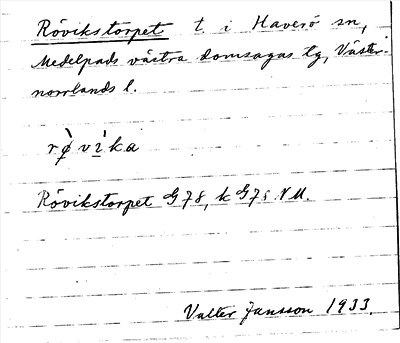 Rövikstorpet t. i Haverö sn,
Medelpads västra domsagas tg, Väster-
norrlands l.
rø̀vı̀ka
Rövikstorpet G78, k G78 NU.
Valter Jansson 1933.